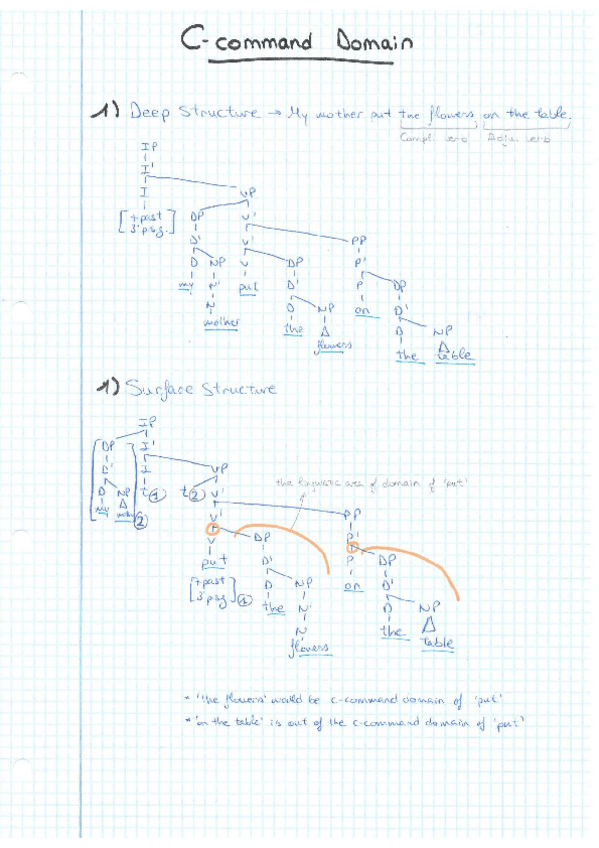 C-command Domain
1) Deep Structure → My mother put the flowers on the table.
Compl. verb Adju. verb
IP
I'
I VP
[+past 3ʳpsg.] DP V'
D' V' PP
D NP V DP P'
my N' put D' P DP
N D NP on D'
mother the flowers D NP
the table
1) Surface Structure
IP
DP I'
D' I VP
D NP t① t② V'
my mother ② V' PP
the linguistic area of domain of 'put'
V DP P'
put D' P DP
[+past 3ʳpsg] ① D NP on D'
the N' D NP
N the table
flowers
* 'the flowers' would be c-command domain of 'put'
* 'on the table' is out of the c-command domain of 'put'